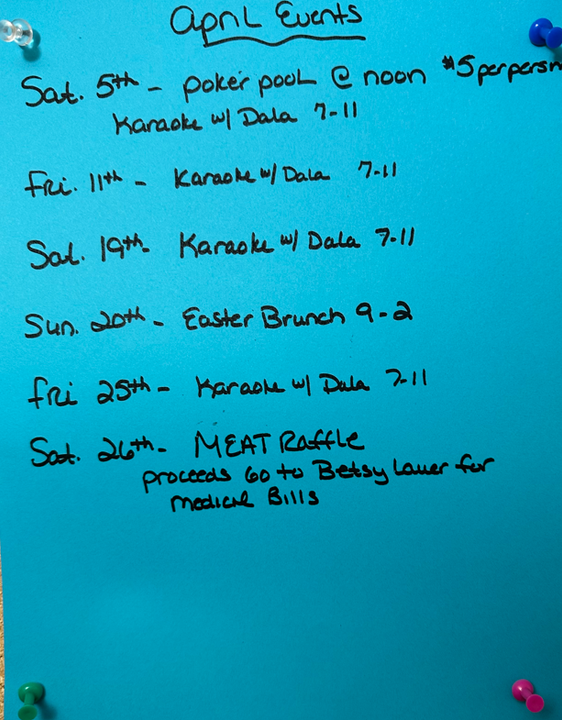 April Events
Sat. 5th - poker pool @ noon $5 per person
Karaoke w/ Dala 7-11
Fri. 11th - Karaoke w/ Dala 7-11
Sat. 19th- Karaoke w/ Dala 7-11
Sun. 20th - Easter Brunch 9-2
Fri 25th - Karaoke w/ Dala 7-11
Sat. 26th- MEAT Raffle
proceeds Go to Betsy Lauer for
Medical Bills